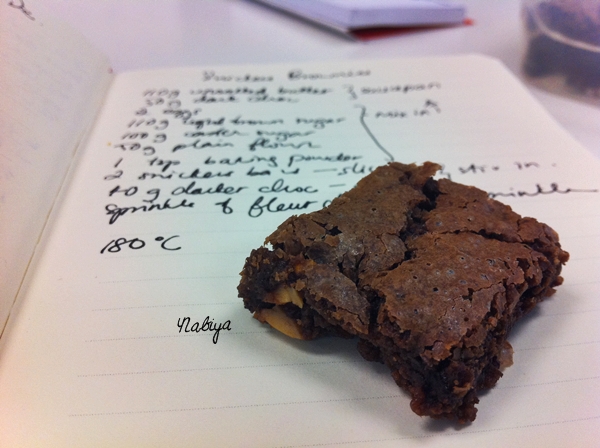 Snickers Brownies
110g unsalted butter } saucepan
50g dark choc
2 eggs
110g light brown sugar
100g caster sugar
50g plain flour
1 tsp baking powder
2 snickers bars — stir in.
40g darker choc — sprinkle
sprinkle of fleur
180°C
Nabiya